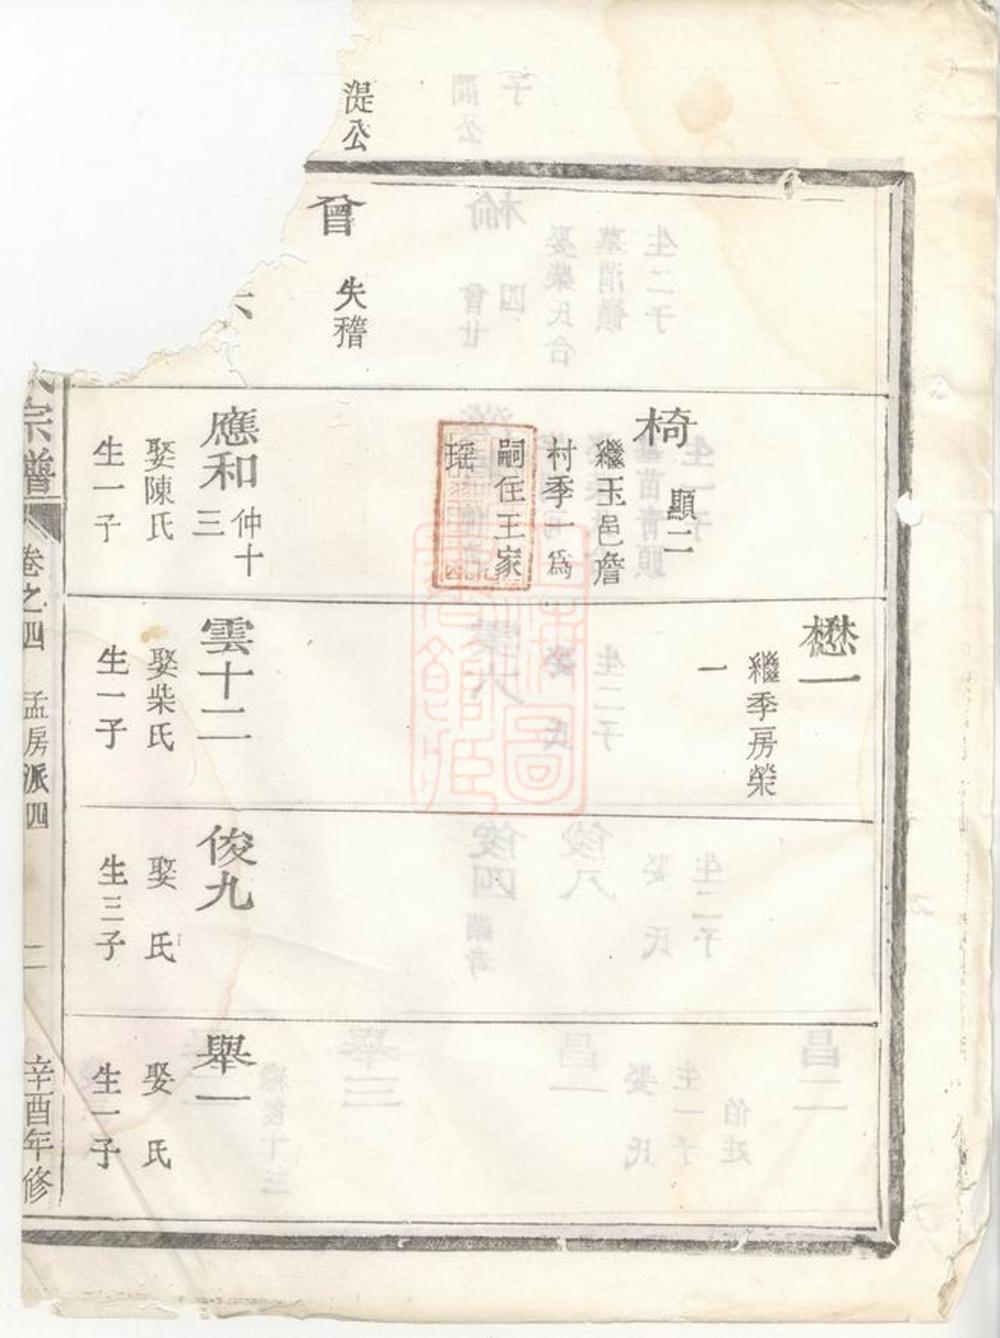 湜公
曾
失稽
椅
顯二
繼玉邑詹
村季一為
嗣住王家
瑶
應和
仲十
三
娶陳氏
生一子
懋一
繼季房榮
一
雲十二
娶柴氏
生一子
俊九
娶 氏
生三子
舉一
娶 氏
生一子
宗譜
卷之四
孟房派四
二
辛酉年修